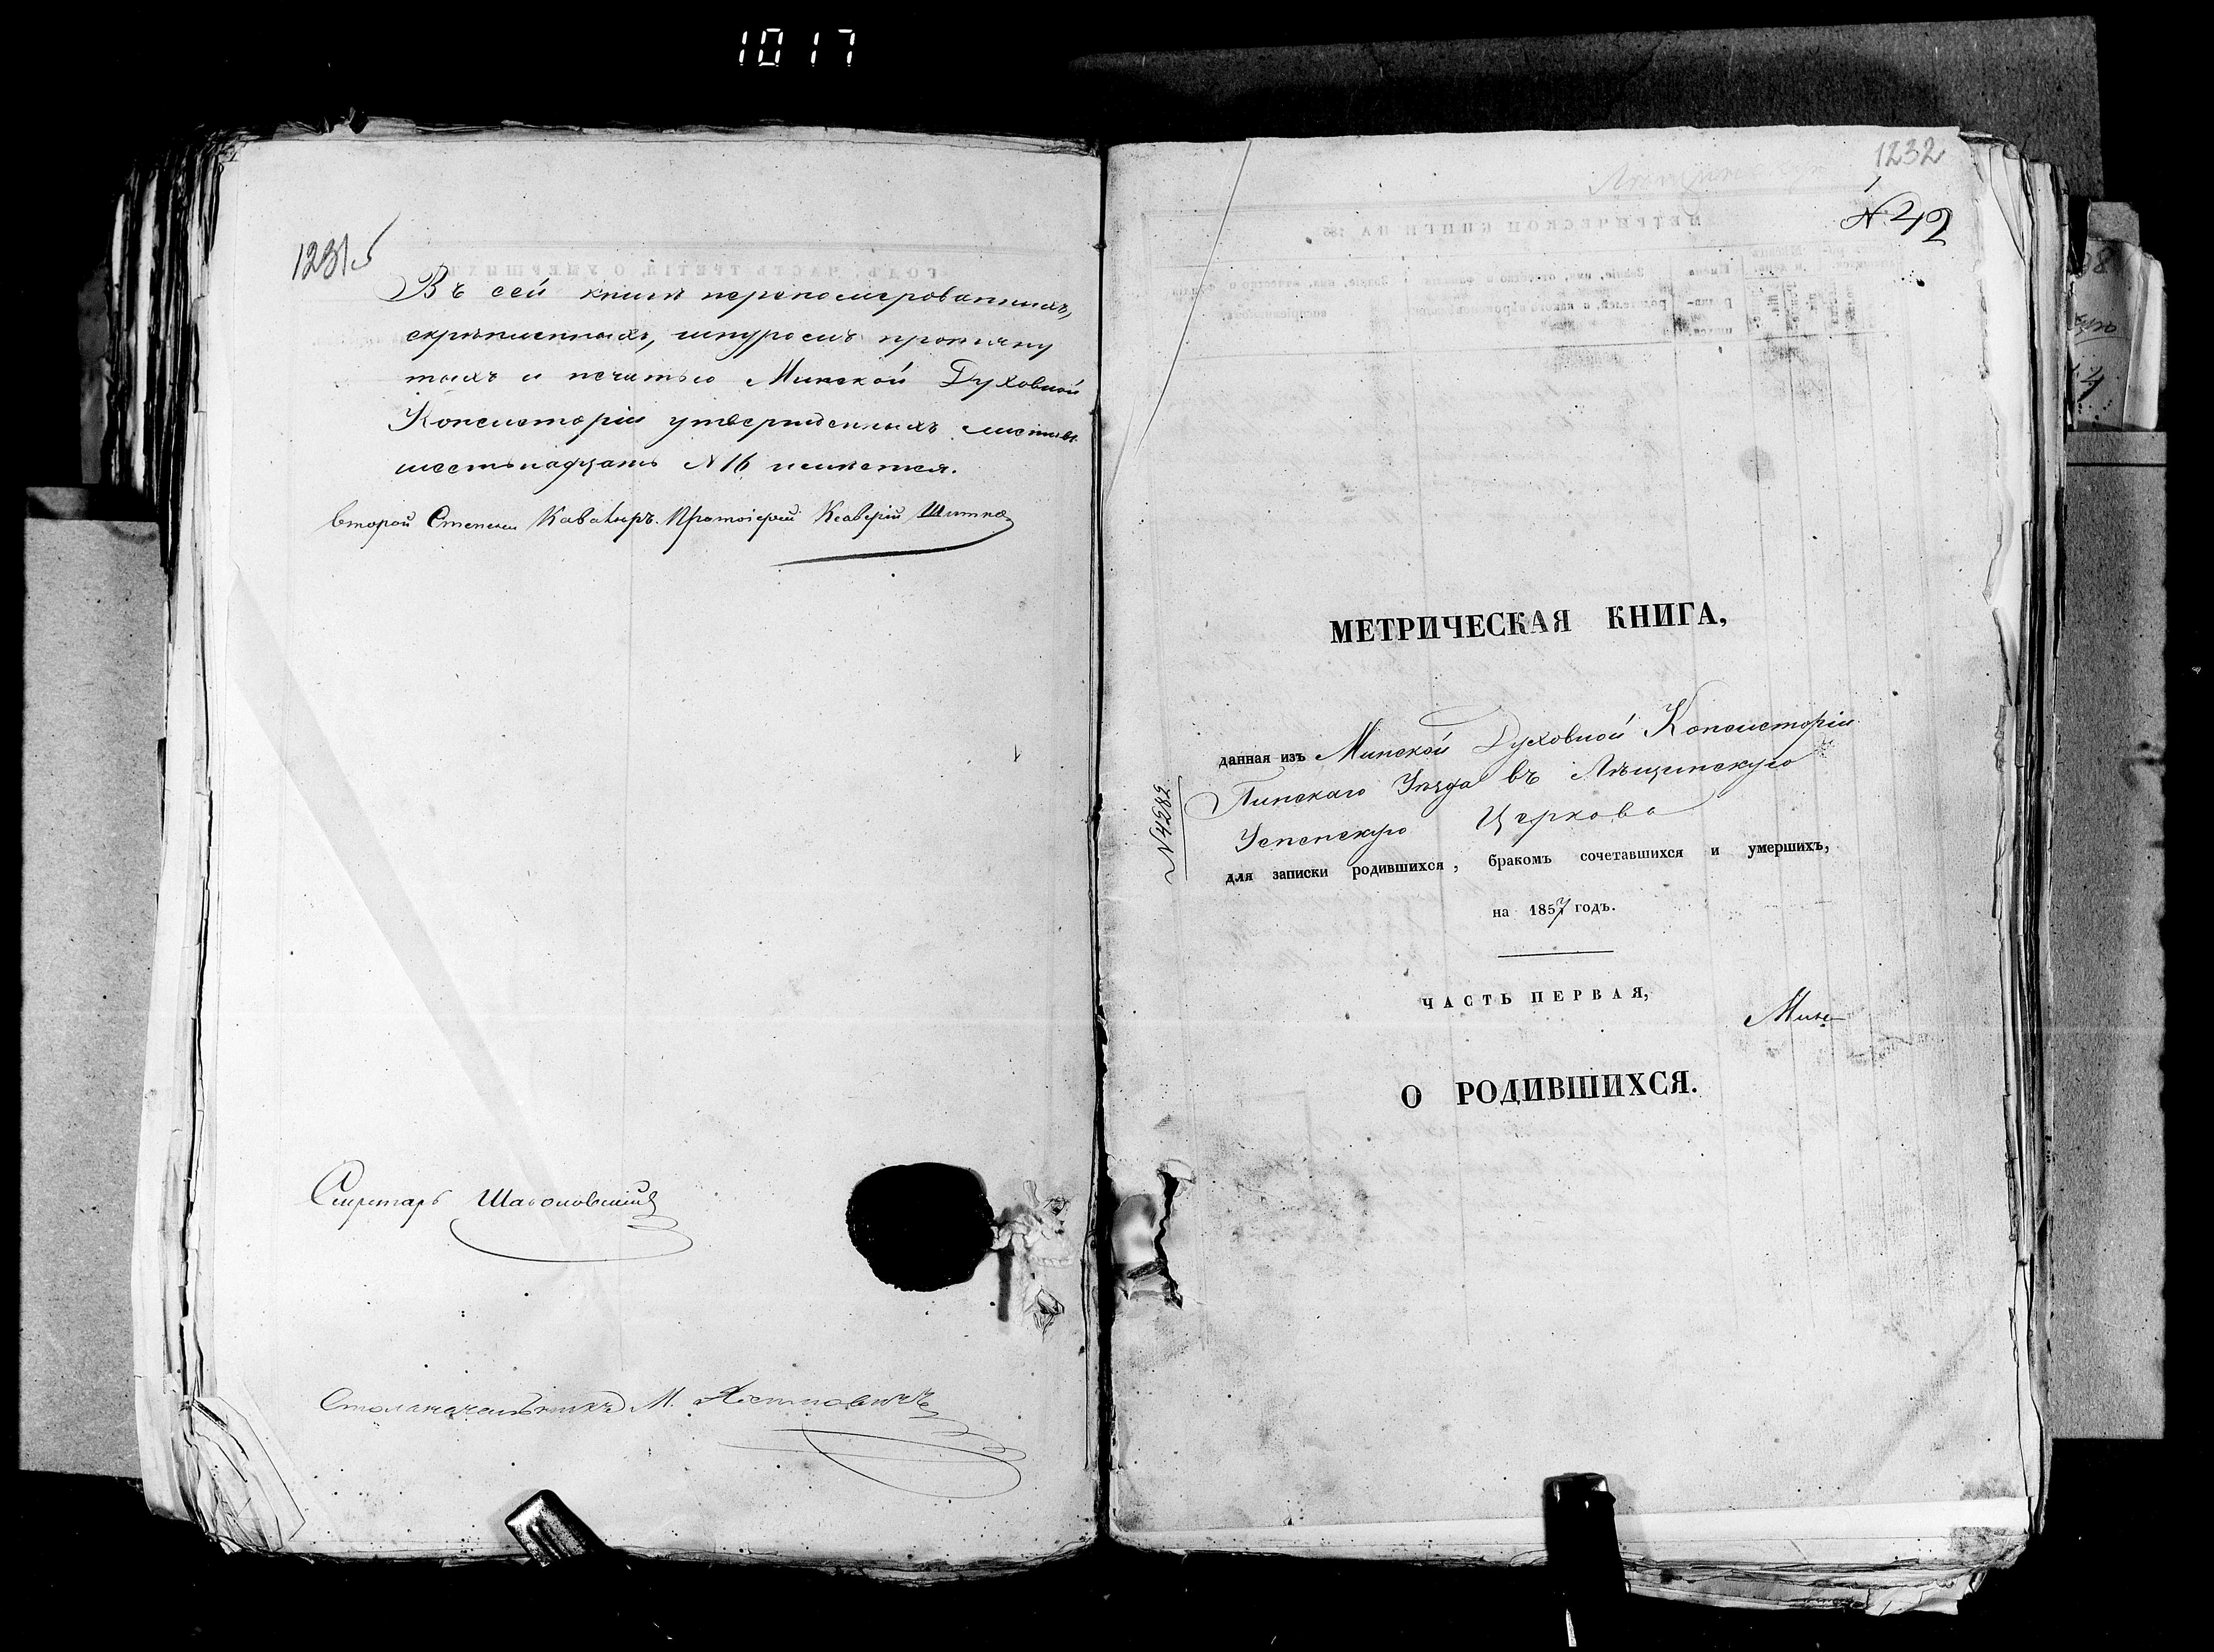 1017
1231б
Въ сей книгѣ перенумерованныхъ,
скрѣпленныхъ, шнуромъ протяну
тыхъ и печатью Минской Духовной
Консисторіи утвержденныхъ листовъ
шестьнадцать N 16 имѣется.
второй Степени Кавалеръ Протоіерей Ксаверій
Секретарь
Столоначальникъ М.
1232
1
N. 42
МЕТРИЧЕСКАЯ КНИГА,
данная изъ Минской Духовной Консисторіи
Пинскаго Уѣзда въ Лѣщинскую
Успенскую Церковь
N 4282
для записки родившихся, бракомъ сочетавшихся и умершихъ,
на 1857 годъ.
ЧАСТЬ ПЕРВАЯ,
Мин
О РОДИВШИХСЯ.